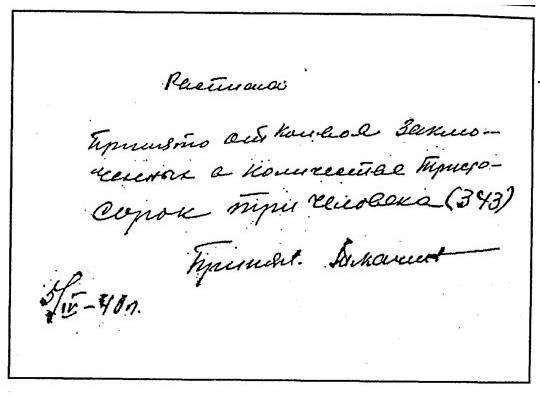 Расписка
Принято от Конвоя Заклю-
ченных в Количестве Триста-
Сорок три человека (343)
Принял.
5/IV-40 г.